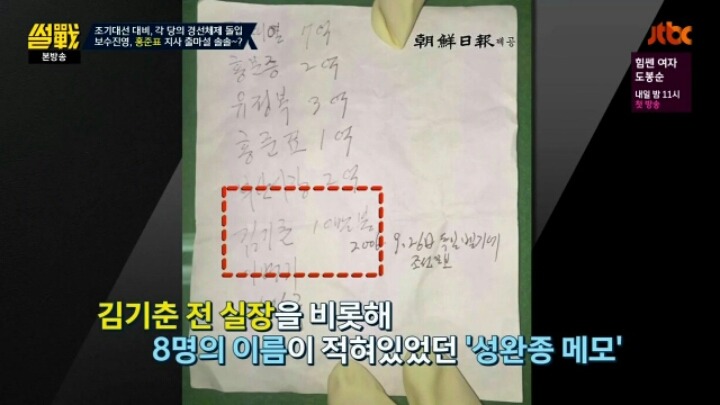 썰戰
본방송
조기대선 대비, 각 당의 경선체제 돌입
보수진영, 홍준표 지사 출마설 솔솔~?
朝鮮日報 제공
jtbc
힘쎈 여자
도봉순
내일 밤 11시
첫 방송
7억
홍문종 2억
유정복 3억
홍준표 1억
부산시장 2억
김기춘 10만불
9.26日 독일 벨기에
조선일보
김기춘 전 실장을 비롯해
8명의 이름이 적혀있었던 '성완종 메모'